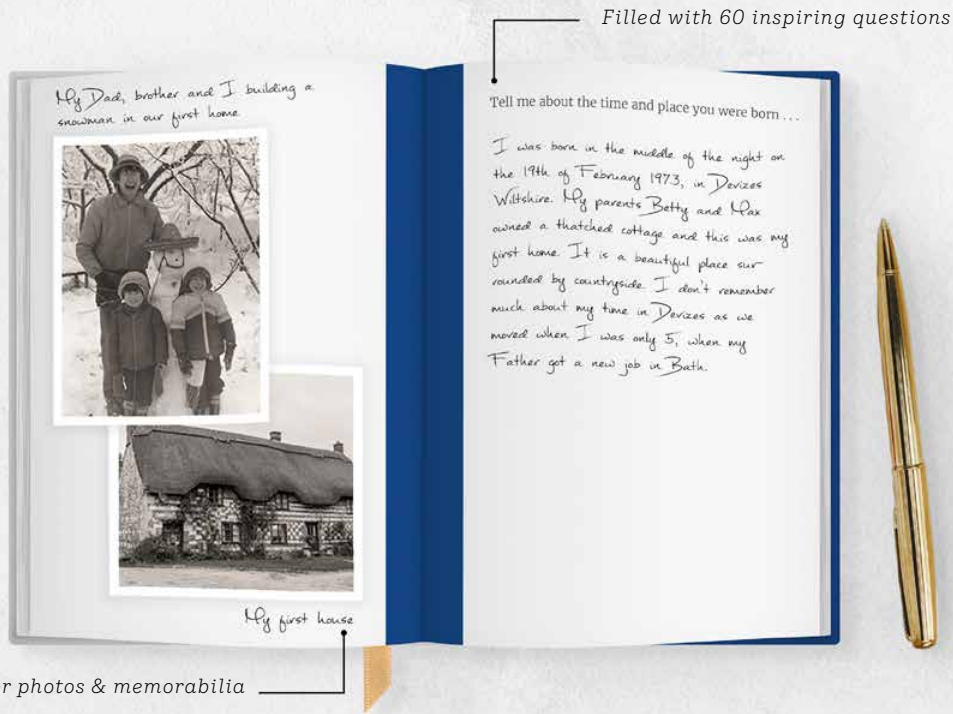 Filled with 60 inspiring questions
My Dad, brother and I building a
snowman in our first home
Tell me about the time and place you were born . . .
I was born in the middle of the night on
the 19th of February 1973, in Devizes
Wiltshire. My parents Betty and Max
owned a thatched cottage and this was my
first home. It is a beautiful place sur
rounded by countryside. I don't remember
much about my time in Devizes as we
moved when I was only 5, when my
Father got a new job in Bath.
My first house
photos & memorabilia